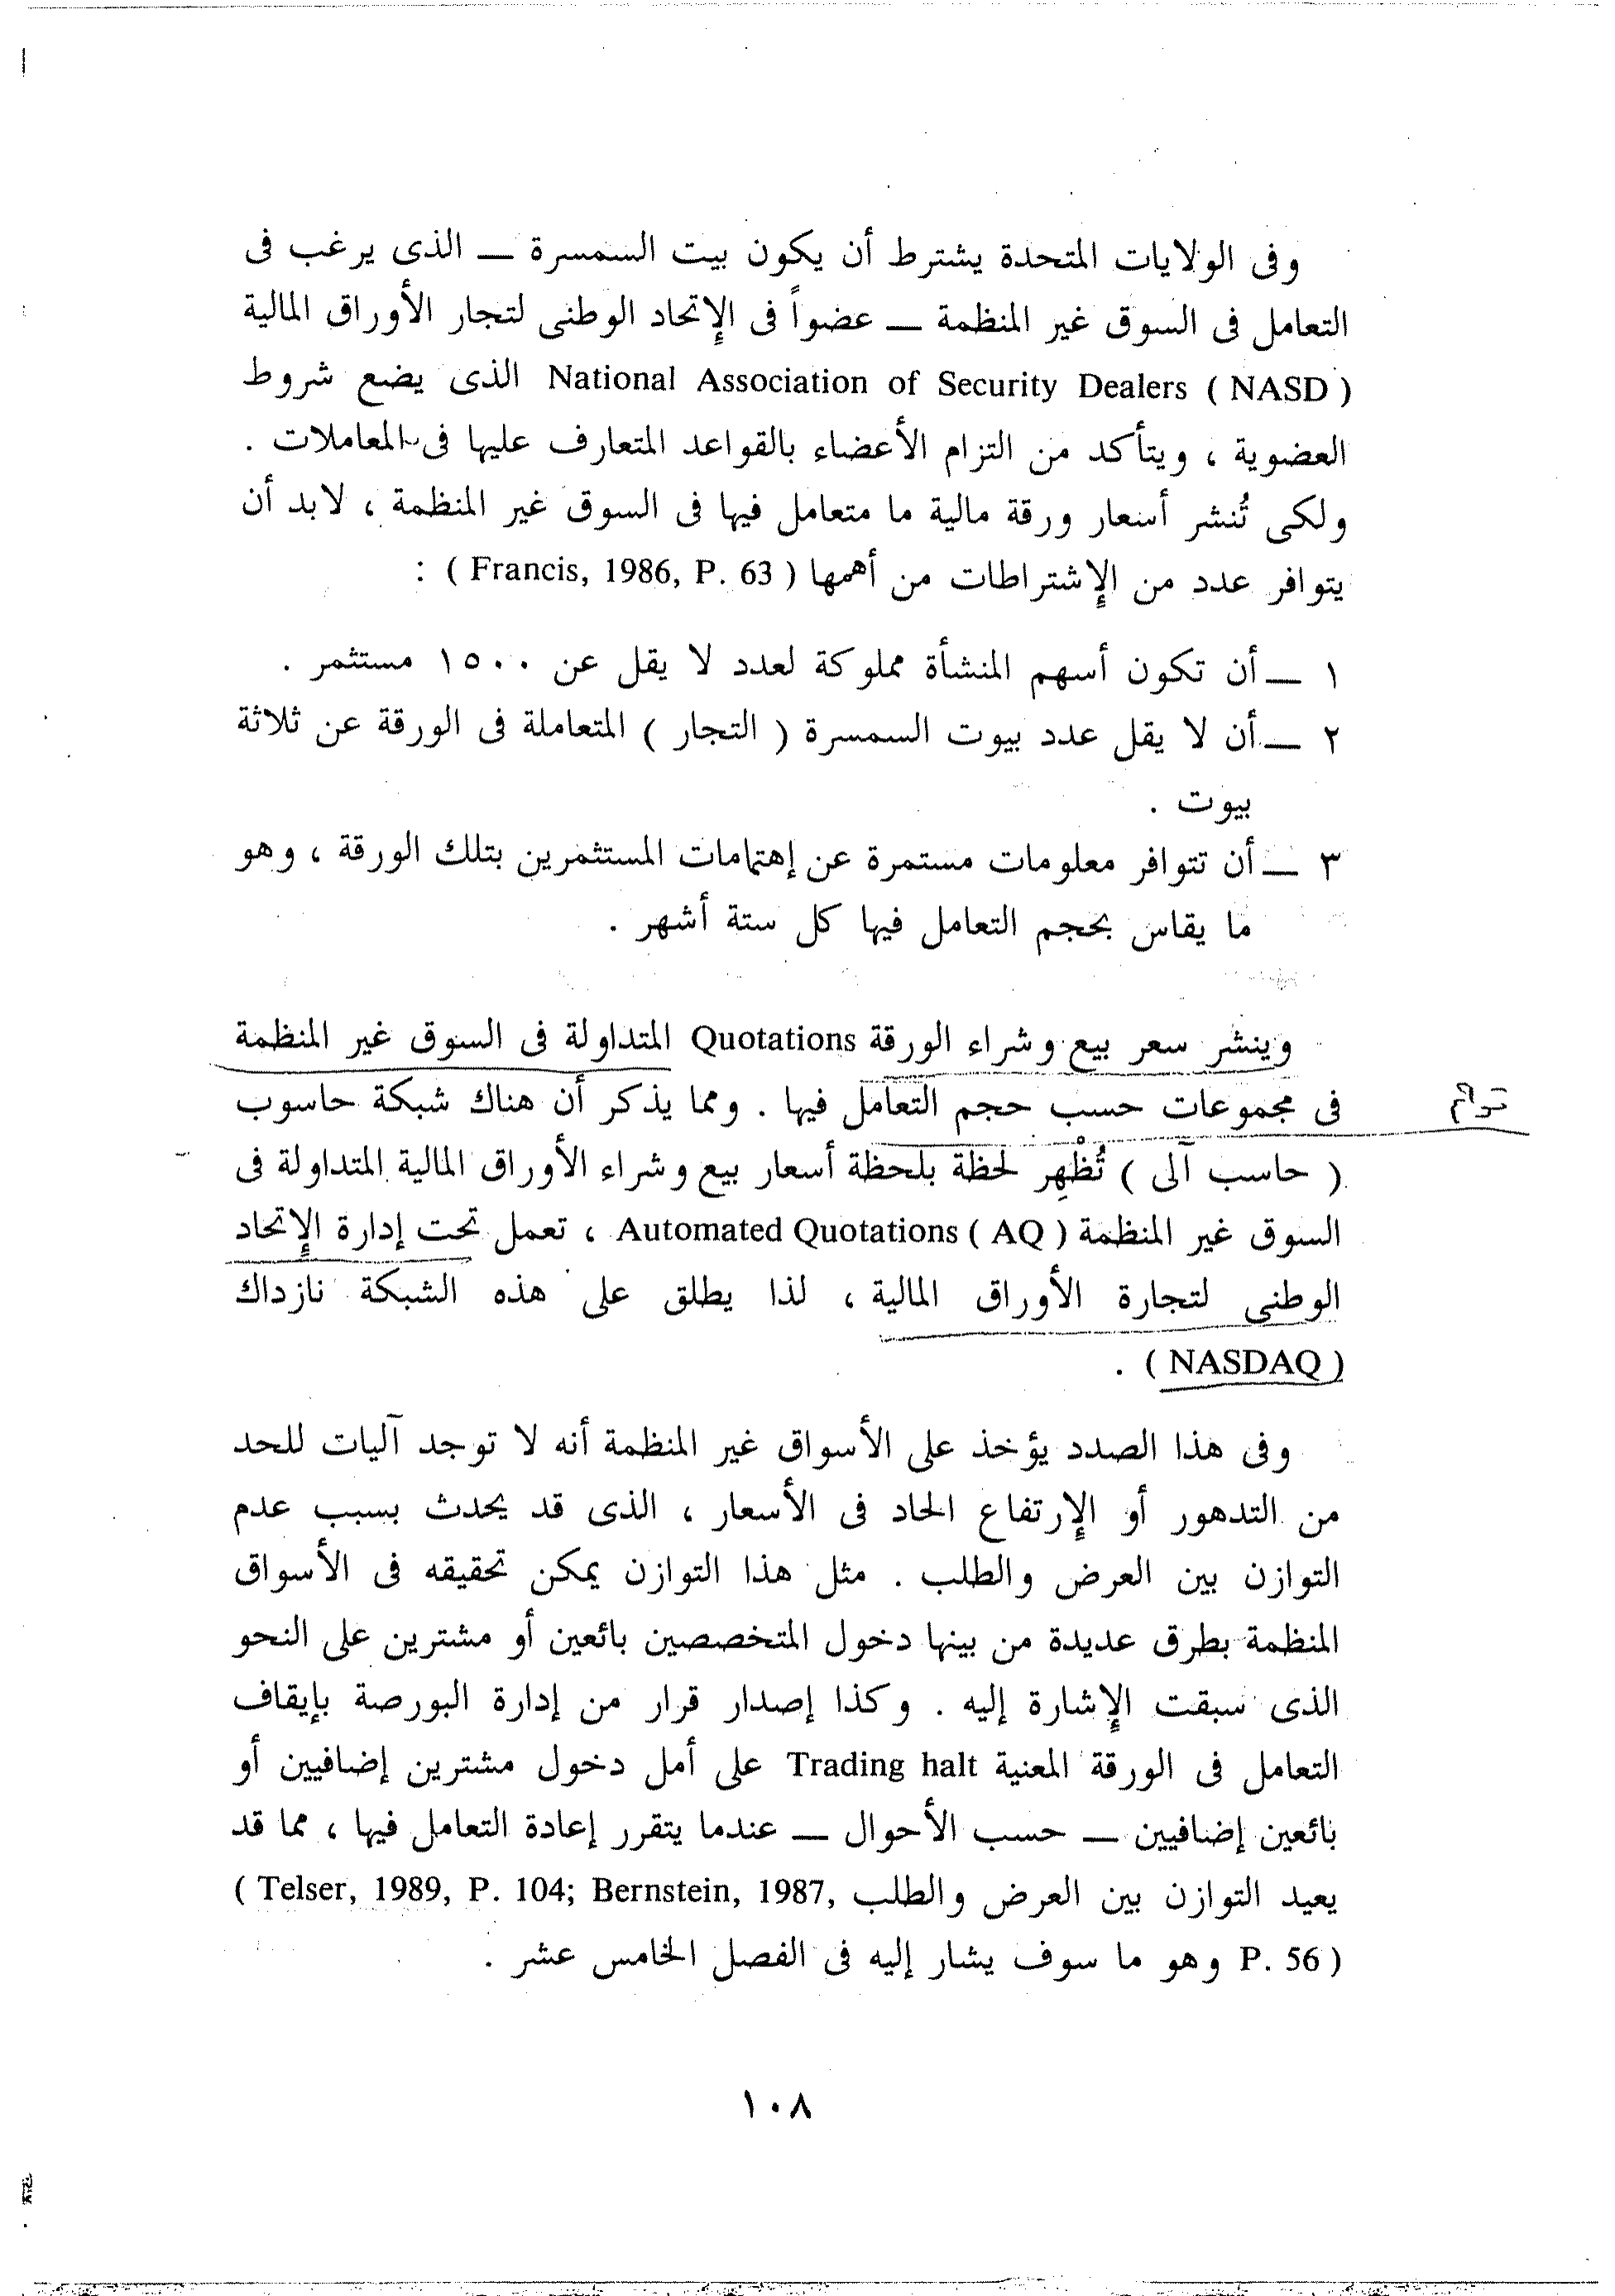 وفى الولايات المتحدة يشترط أن يكون بيت السمسرة — الذى يرغب فى
التعامل فى السوق غير المنظمة — عضواً فى الإتحاد الوطنى لتجار الأوراق المالية
National Association of Security Dealers ( NASD ) الذى يضع شروط
العضوية ، ويتأكد من التزام الأعضاء بالقواعد المتعارف عليها فى المعاملات .
ولكى تُنشر أسعار ورقة مالية ما متعامل فيها فى السوق غير المنظمة ، لابد أن
يتوافر عدد من الإشتراطات من أهمها ( Francis, 1986, P. 63 ) :
١ — أن تكون أسهم المنشأة مملوكة لعدد لا يقل عن ١٥٠٠ مستثمر .
٢ — أن لا يقل عدد بيوت السمسرة ( التجار ) المتعاملة فى الورقة عن ثلاثة
بيوت .
٣ — أن تتوافر معلومات مستمرة عن إهتمامات المستثمرين بتلك الورقة ، وهو
ما يقاس بحجم التعامل فيها كل ستة أشهر .
وينشر سعر بيع وشراء الورقة Quotations المتداولة فى السوق غير المنظمة
فى مجموعات حسب حجم التعامل فيها . ومما يذكر أن هناك شبكة حاسوب
( حاسب آلى ) تُظْهِر لحظة بلحظة أسعار بيع وشراء الأوراق المالية المتداولة فى
السوق غير المنظمة Automated Quotations ( AQ ) ، تعمل تحت إدارة الإتحاد
الوطنى لتجارة الأوراق المالية ، لذا يطلق على هذه الشبكة نازداك
( NASDAQ ) .
وفى هذا الصدد يؤخذ على الأسواق غير المنظمة أنه لا توجد آليات للحد
من التدهور أو الإرتفاع الحاد فى الأسعار ، الذى قد يحدث بسبب عدم
التوازن بين العرض والطلب . مثل هذا التوازن يمكن تحقيقه فى الأسواق
المنظمة بطرق عديدة من بينها دخول المتخصصين بائعين أو مشترين على النحو
الذى سبقت الإشارة إليه . وكذا إصدار قرار من إدارة البورصة بإيقاف
التعامل فى الورقة المعنية Trading halt على أمل دخول مشترين إضافيين أو
بائعين إضافيين — حسب الأحوال — عندما يتقرر إعادة التعامل فيها ، مما قد
يعيد التوازن بين العرض والطلب ( Telser, 1989, P. 104; Bernstein, 1987,
P. 56 ) وهو ما سوف يشار إليه فى الفصل الخامس عشر .
١٠٨